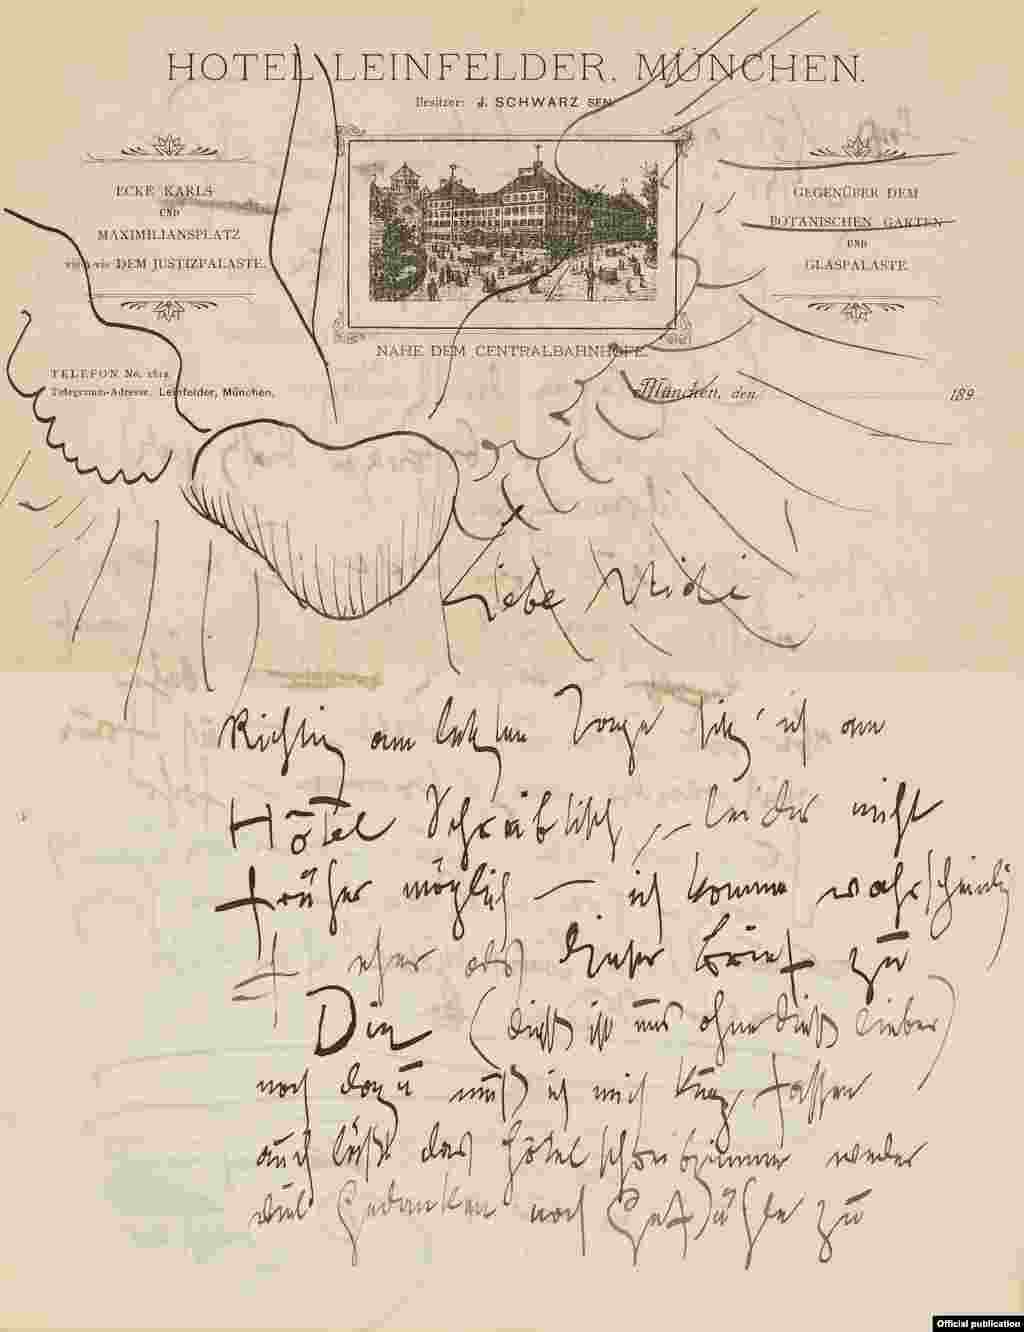 HOTEL LEINFELDER, MÜNCHEN.
Besitzer: J. SCHWARZ SEN.
ECKE KARLS-
UND
MAXIMILIANSPLATZ
vis-à-vis DEM JUSTIZPALASTE.
GEGENÜBER DEM
BOTANISCHEN GARTEN
UND
GLASPALASTE.
NAHE DEM CENTRALBAHNHOFE.
TELEFON No.
Telegramm-Adresse: Leinfelder, München.
München, den 189
Liebe
Richtig am letzten Tage sitz' ich am
Hôtel Schreibtisch, leider nicht
früher möglich — ich komme wahrscheinlich
eher als dieser Brief zu
Dir (dieß ist mir ohne dieß lieber)
noch dazu muß ich mich kurz fassen
auch läßt das Hôtelschreibzimmer weder
viel Gedanken noch Gefühle zu
Official publication